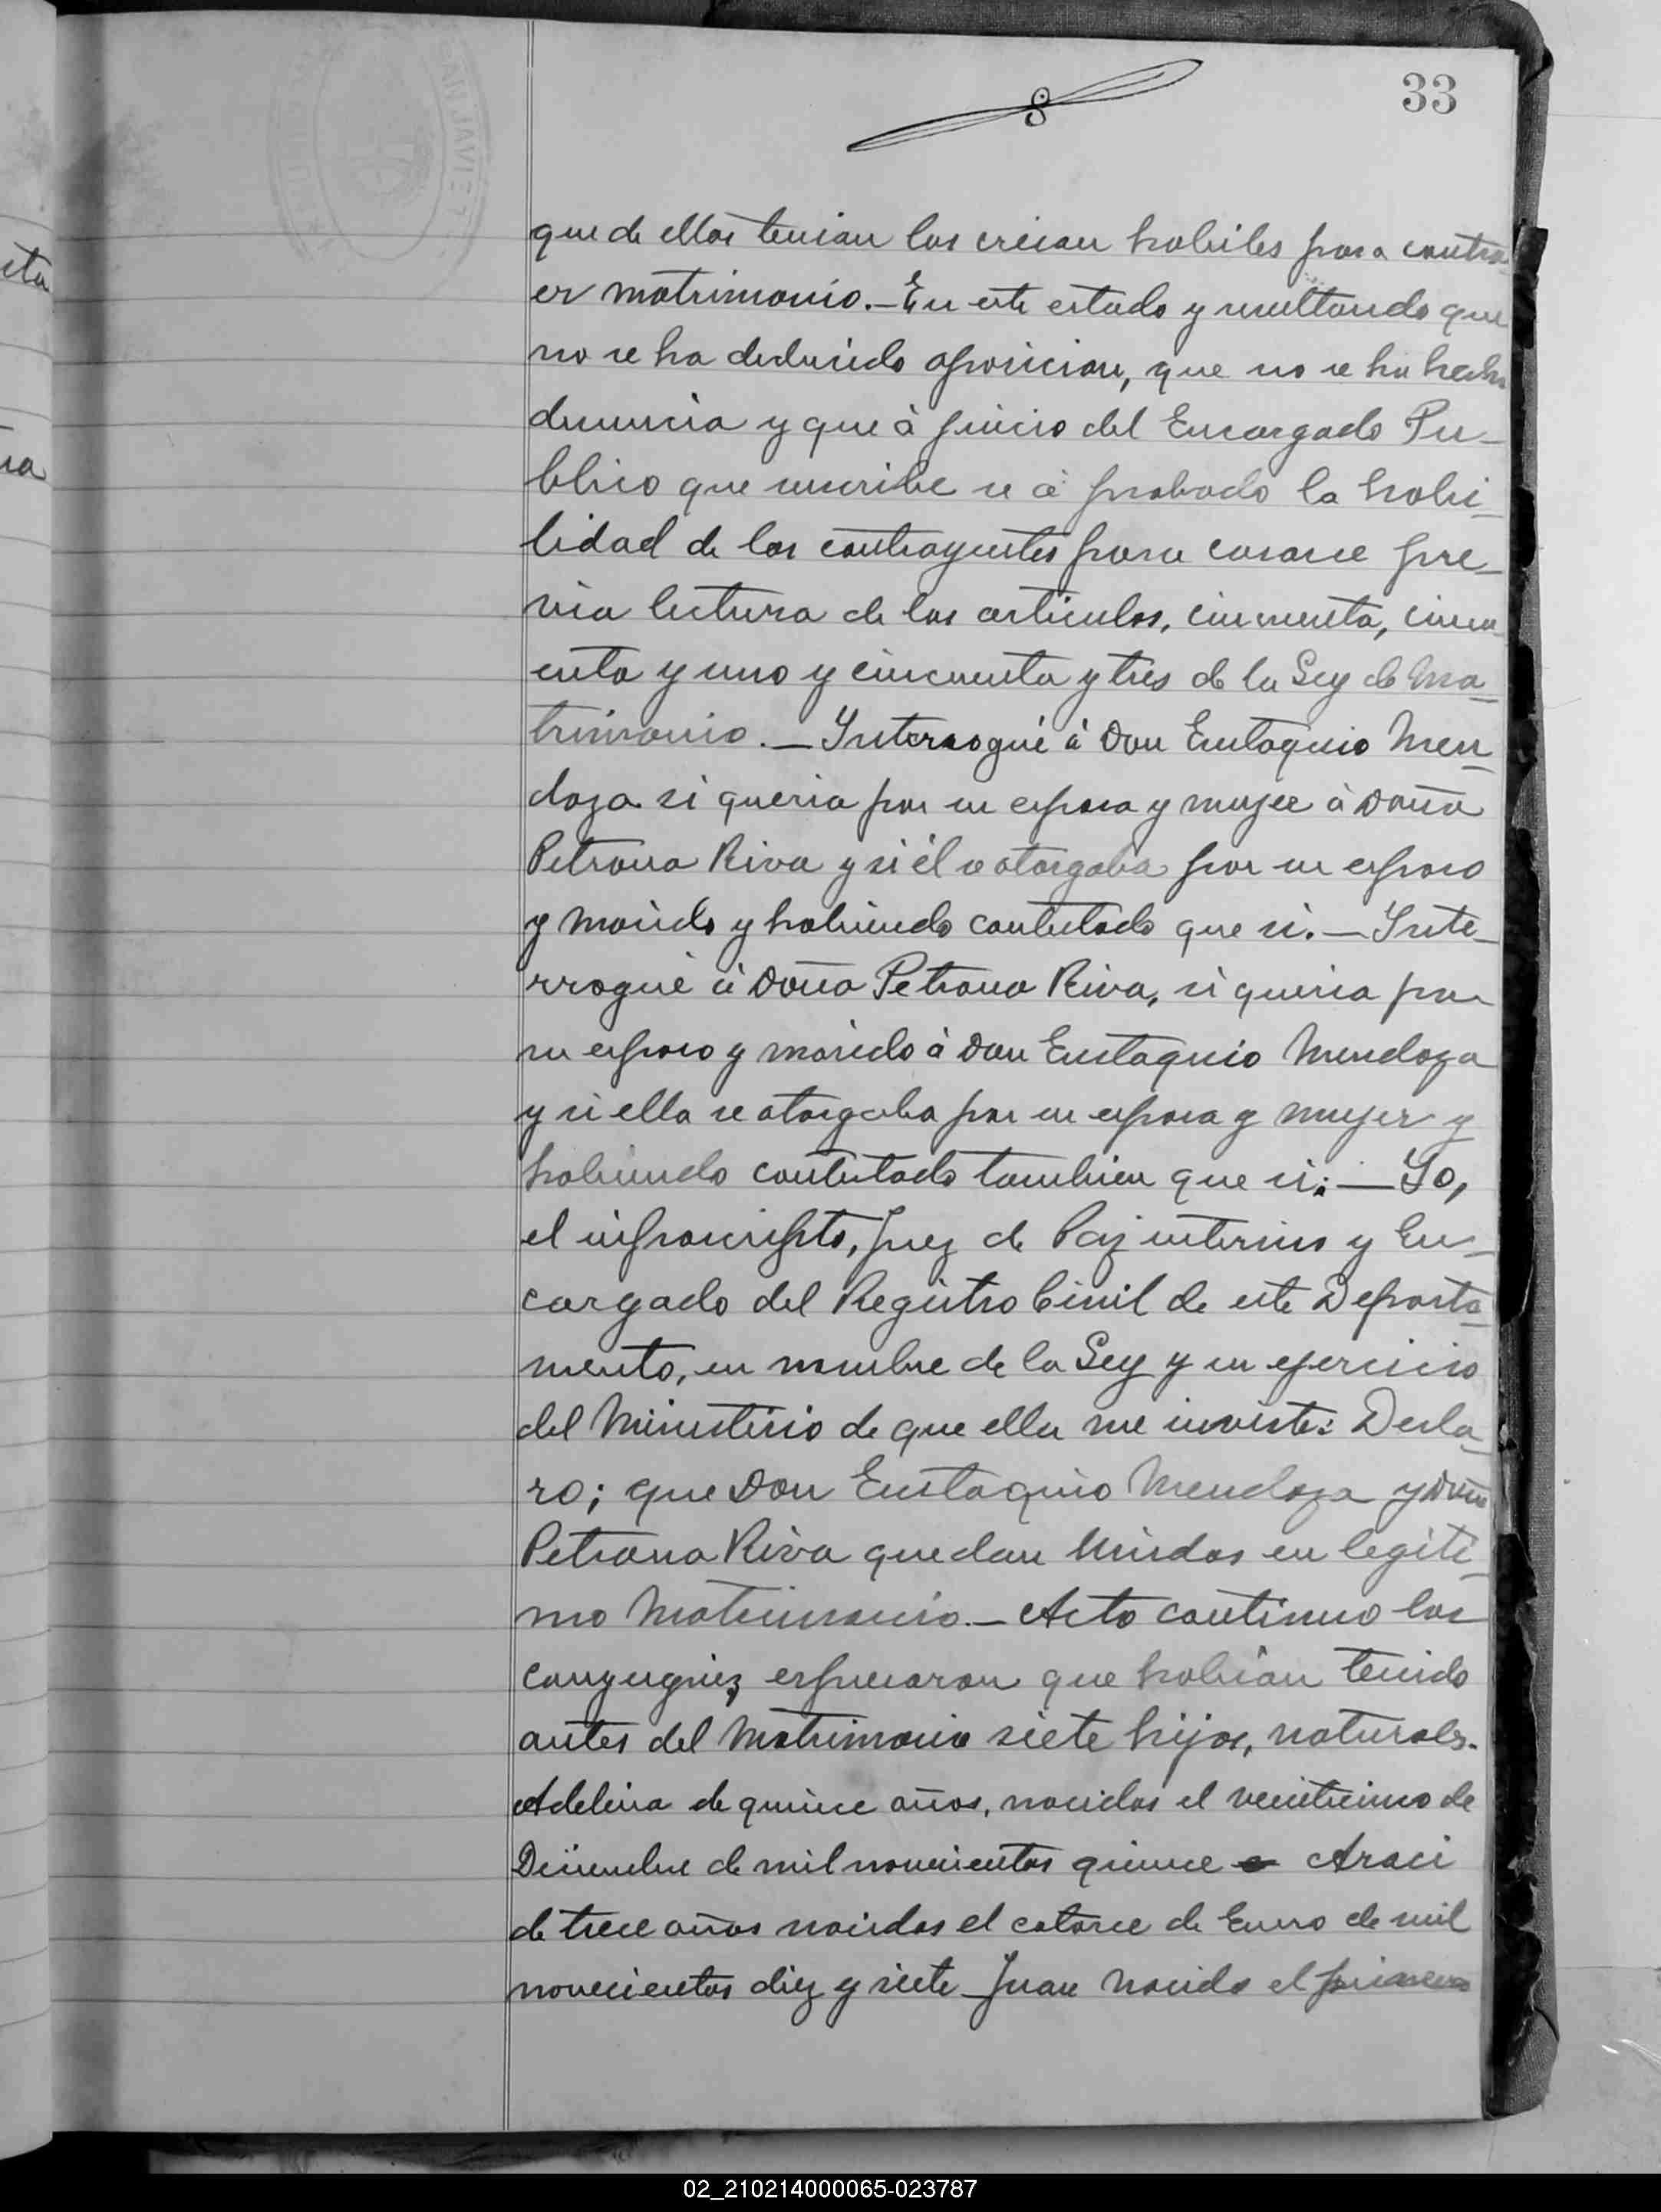 33
que de ellos tenian los creian habiles para contra
er matrimonio.—En este estado y resultando que
no se ha deducido oposicion, que no se ha hecho
denuncia y que à juicio del Encargado Pu-
blico que suscribe se à probado la habi-
lidad de los contrayentes para casarse pre-
via lectura de los articulos, cincuenta, cincu
enta y uno y cincuenta y tres de la Ley de Ma-
trimonio.—Interrogué à Don Eustaquio Men
doza si queria por su esposa y mujer à Doña
Petrona Riva y si él se otorgaba por su esposo
y marido y habiendo contestado que si.—Inte-
rrogué à Doña Petrona Riva, si queria por
su esposo y marido à Don Eustaquio Mendoza
y si ella se otorgaba por su esposa y mujer y
habiendo contestado tambien que si:—Yo,
el infrascripto, Juez de Paz interino y En-
cargado del Registro Civil de este Departa-
mento, en nombre de la Ley y en ejercicio
del Ministerio de que ella me inviste: Decla-
ro; que Don Eustaquio Mendoza y Doña
Petrona Riva quedan Unidos en legiti-
mo Matrimonio.—Acto continuo los
espresaron que habian tenido
antes del Matrimonio siete hijos, naturales.
Adelina de quince años, nacidos el veinticinco de
Diciembre de mil novecientos quince Araci
de trece años nacidos el catorce de Enero de mil
novecientos diez y siete Juan nacido el primero
02_210214000065-023787